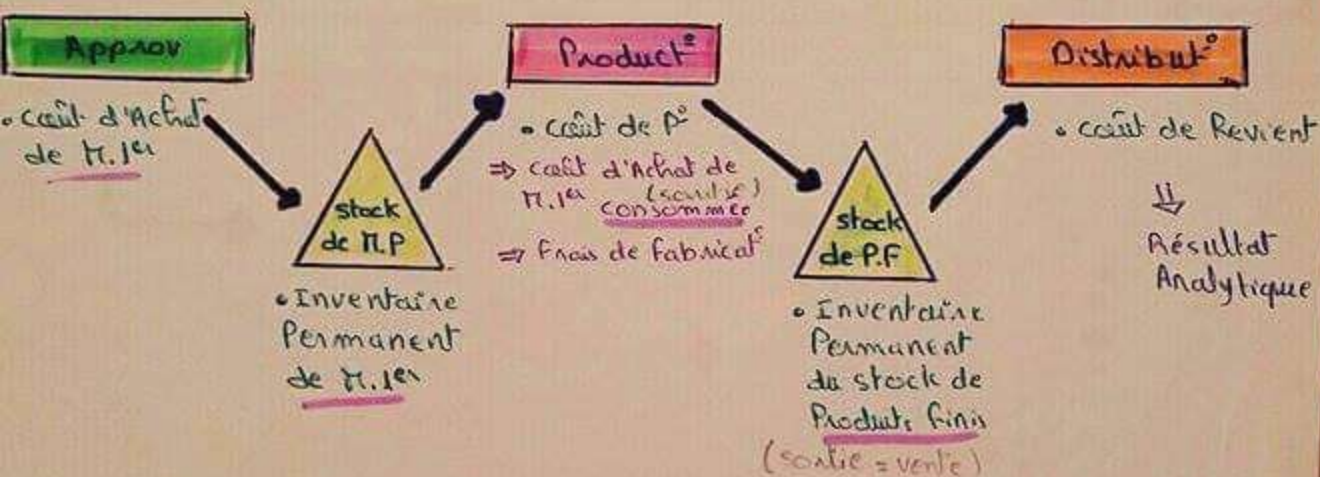 Approv
• coût d'Achat
de M.1er
stock
de M.P
• Inventaire
Permanent
de M.1er
Product°
• coût de P°
⇒ coût d'Achat de
M.1er (sortie)
consommée
⇒ Frais de fabricat°
stock
de P.F
• Inventaire
Permanent
du stock de
Produits finis
(sortie = vente)
Distribut°
• coût de Revient
⇓
Résultat
Analytique